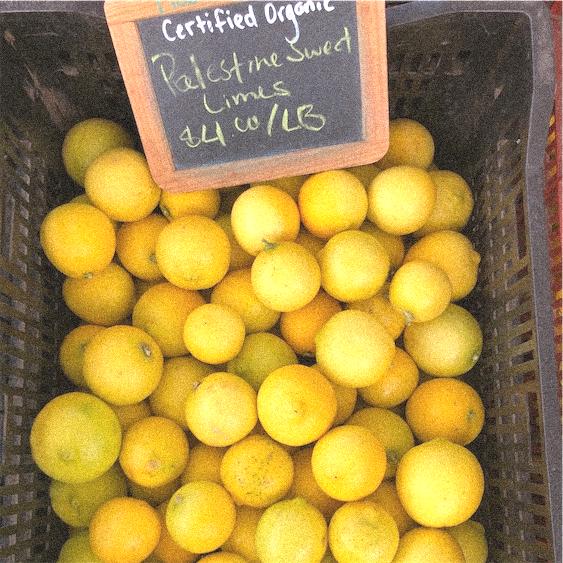 Certified Organic
Palestine Sweet
Limes
$4.00/LB